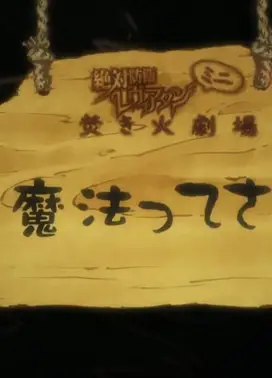 絶対防衛レヴィアタン
ミニ
焚き火劇場
魔法ってさ